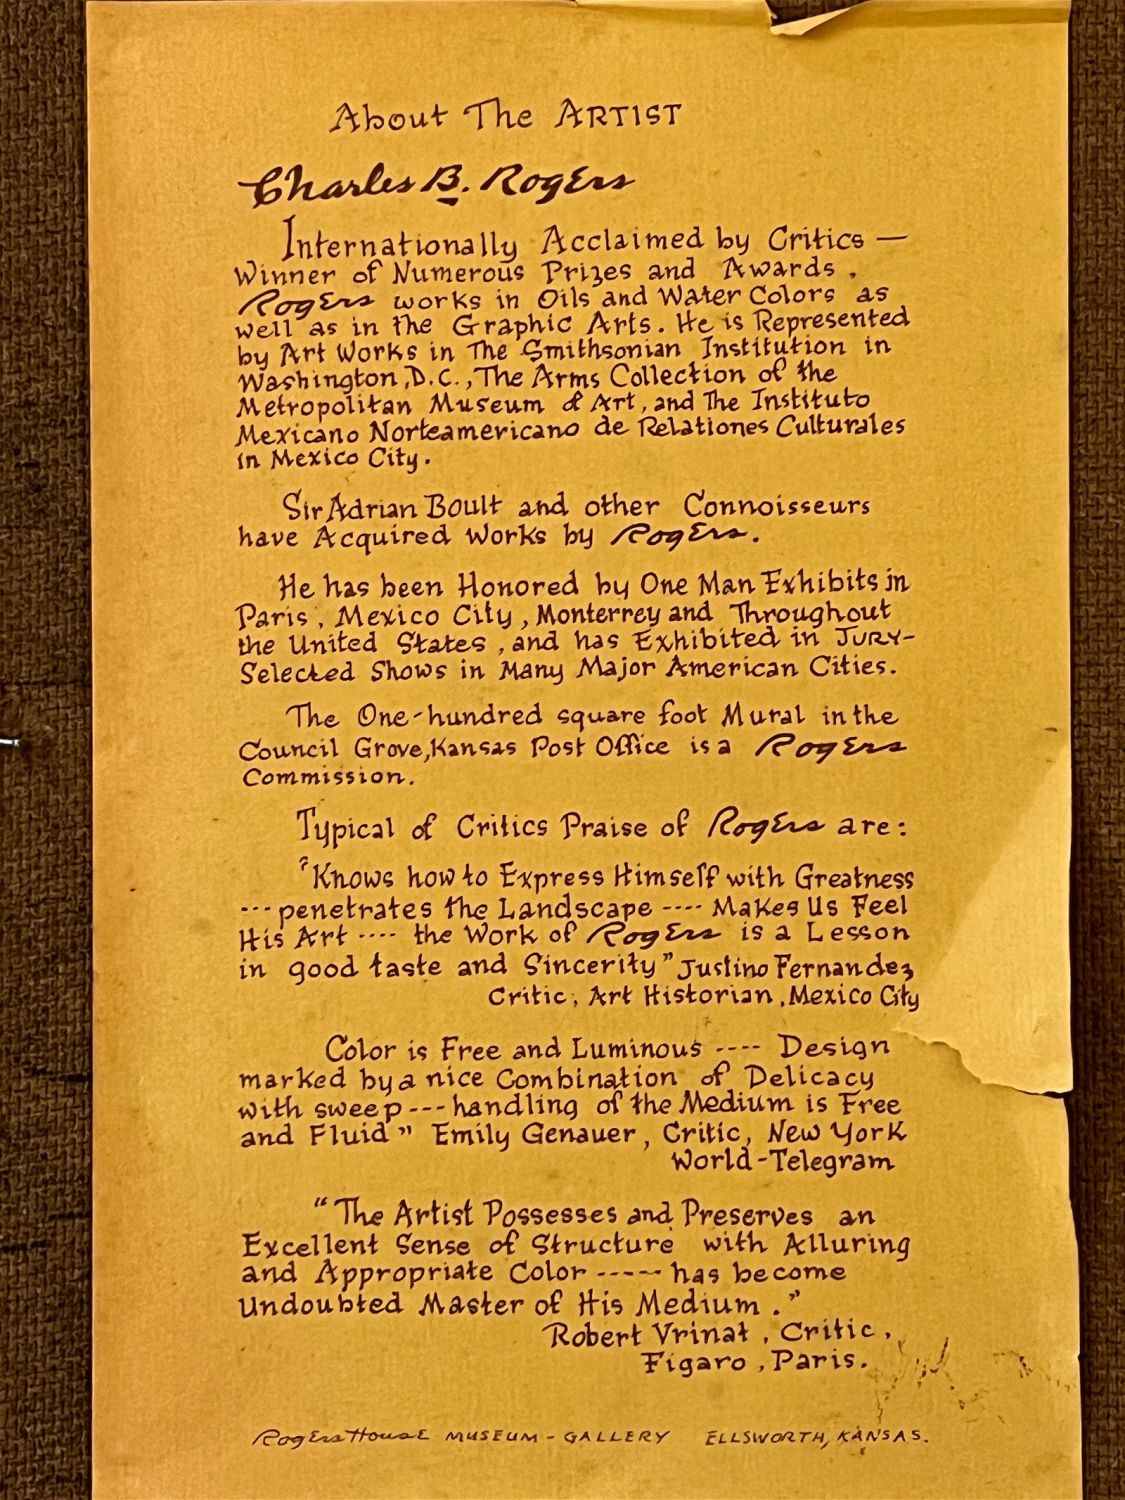 About The ARTIST
Charles B. Rogers
Internationally Acclaimed by Critics —
Winner of Numerous Prizes and Awards,
Rogers works in Oils and Water Colors as
well as in the Graphic Arts. He is Represented
by Art Works in The Smithsonian Institution in
Washington, D.C., The Arms Collection of the
Metropolitan Museum of Art, and The Instituto
Mexicano Norteamericano de Relationes Culturales
in Mexico City.
Sir Adrian Boult and other Connoisseurs
have Acquired Works by Rogers.
He has been Honored by One Man Exhibits in
Paris, Mexico City, Monterrey and Throughout
the United States, and has Exhibited in JURY-
Selected Shows in Many Major American Cities.
The One-hundred square foot Mural in the
Council Grove, Kansas Post Office is a Rogers
Commission.
Typical of Critics Praise of Rogers are:
"Knows how to Express Himself with Greatness
---penetrates the Landscape ---- Makes Us Feel
His Art ---- the Work of Rogers is a Lesson
in good taste and Sincerity" Justino Fernandez
Critic, Art Historian, Mexico City
Color is Free and Luminous ---- Design
marked by a nice Combination of Delicacy
with sweep --- handling of the Medium is Free
and Fluid" Emily Genauer, Critic, New York
World-Telegram
"The Artist Possesses and Preserves an
Excellent Sense of Structure with Alluring
and Appropriate Color ----- has become
Undoubted Master of His Medium."
Robert Vrinat, Critic,
Figaro, Paris.
Rogers House MUSEUM - GALLERY ELLSWORTH, KANSAS.